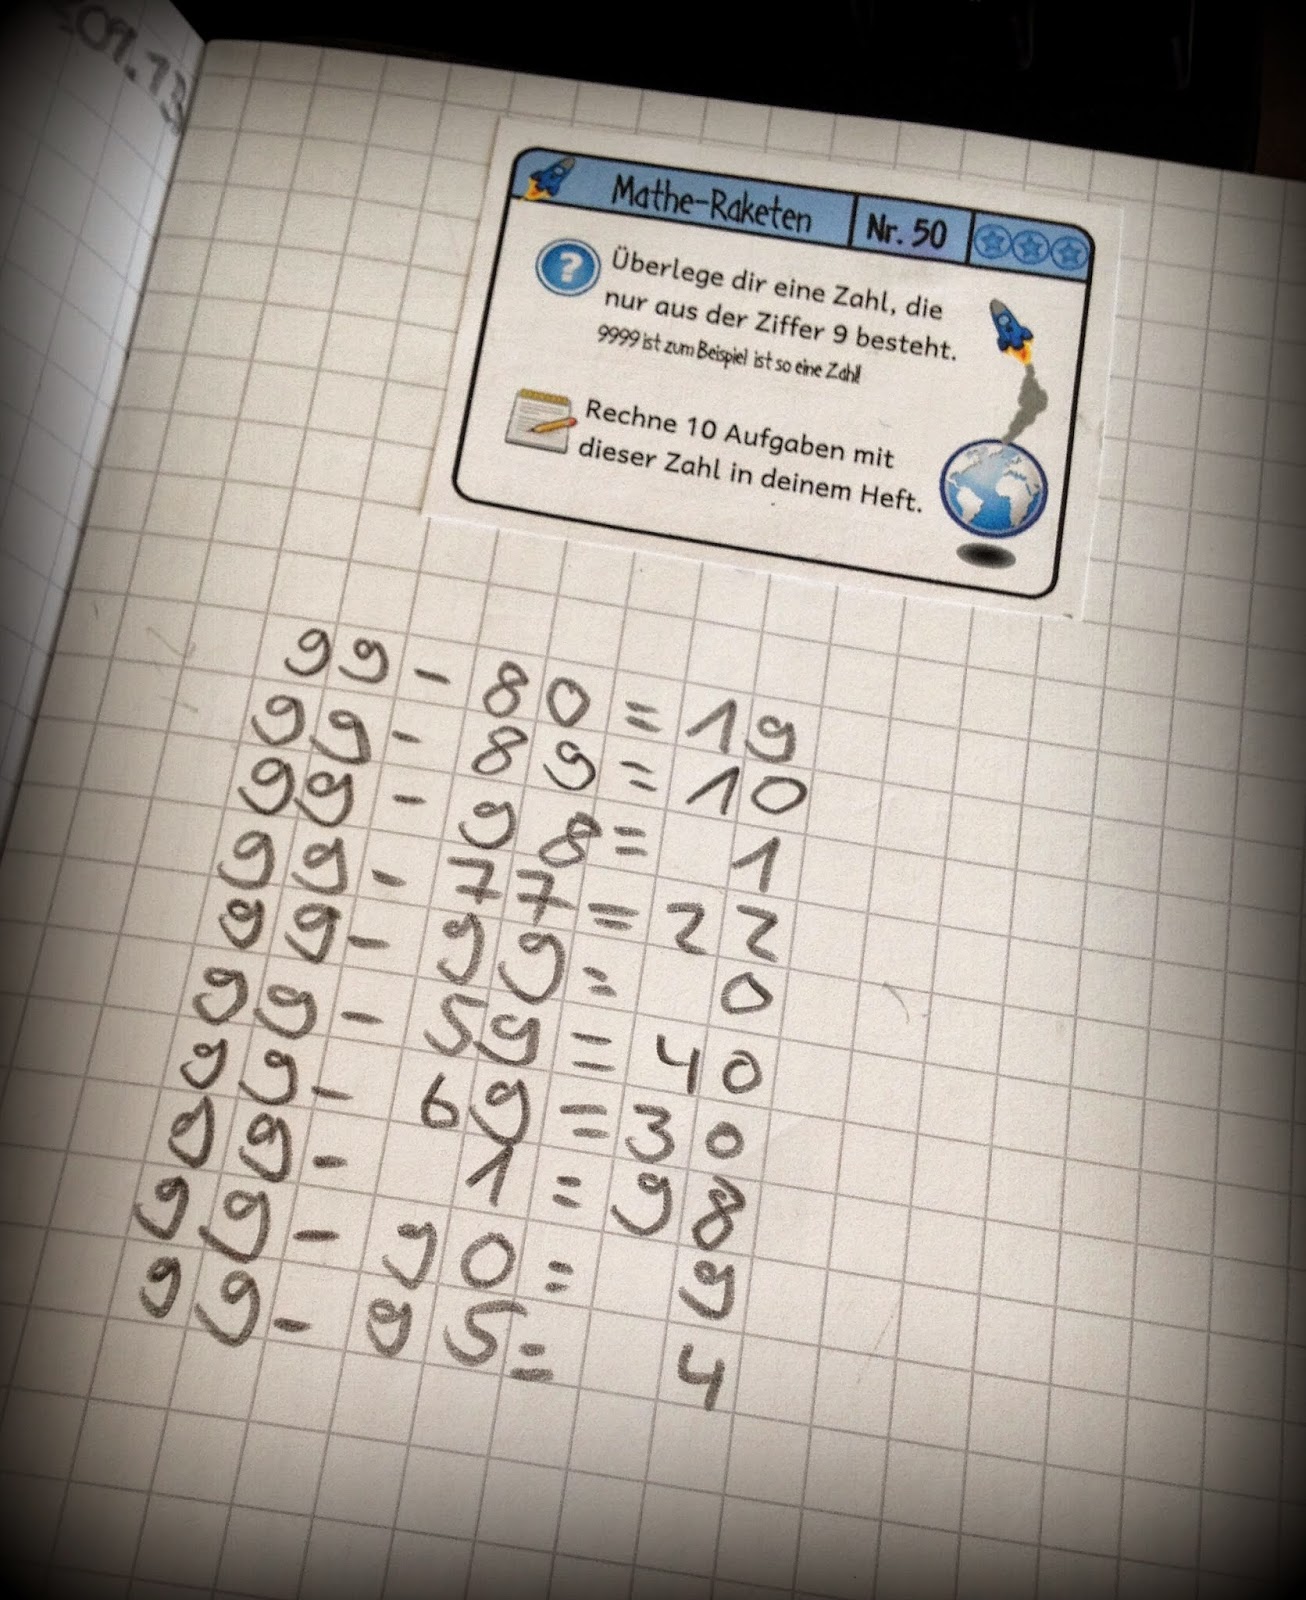 09.13
Mathe-Raketen Nr. 50
Überlege dir eine Zahl, die
nur aus der Ziffer 9 besteht.
9999 ist zum Beispiel ist so eine Zahl!
Rechne 10 Aufgaben mit
dieser Zahl in deinem Heft.
99 - 80 = 19
99 - 89 = 10
99 - 98 = 1
99 - 77 = 22
99 - 99 = 0
99 - 59 = 40
99 - 69 = 30
99 - 1 = 98
99 - 90 = 9
99 - 95 = 4